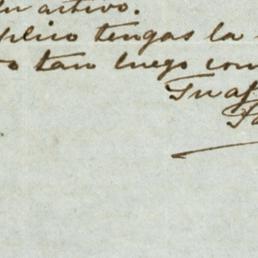 activo.
plico tengas la
tan luego com
Tu af